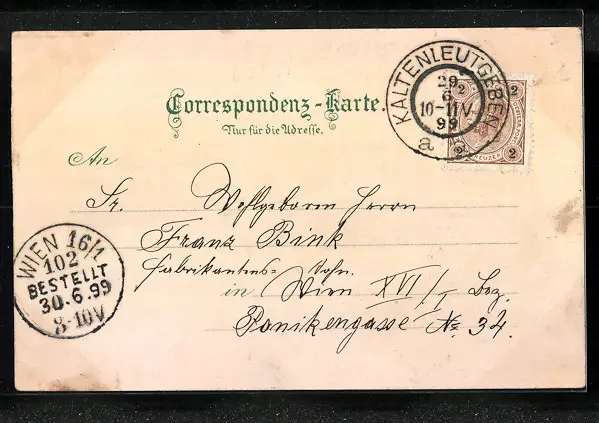 Correspondenz-Karte.
Nur für die Adresse.
KALTENLEUTGEBEN
29
6
10-11V
99
a
2 2
2 KREUZER 2
An
Sr. Wohlgeboren Herrn
Franz Bink
Fabrikantens- Sohn.
in Wien XVI/I Bez.
Panikengasse No. 34.
WIEN 16/1
102
BESTELLT
30.6.99
8-10V